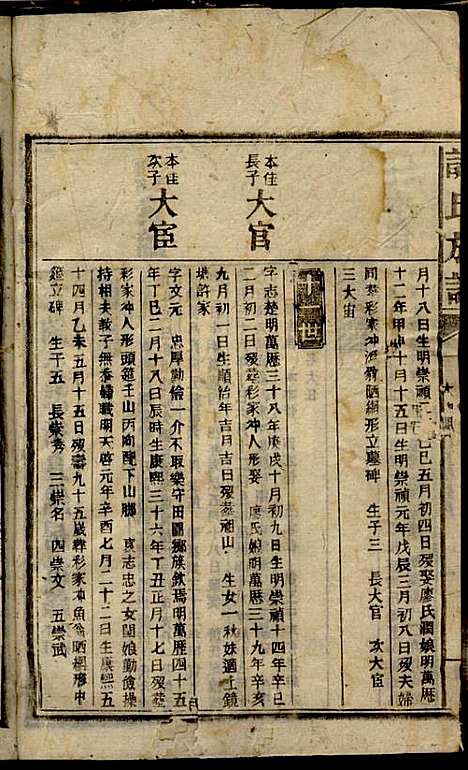 氏族譜
月十八日生明崇禎二己巳五月初四日殁娶廖氏潤娘明萬歷
十二年甲申十月十五日生明崇禎元年戊辰三月初八日殁夫婦
同葬彩家冲海螃晒網形立墓碑 生子三 長大官 次大臣
三大宙
世
本佳長子大官
字志楚明萬歷三十八年庚戌十月初九日生明崇禎十四年辛巳
二月初二日殁葬彩家冲人形娶 廖氏娘明萬歷三十九年辛亥
九月初一日生順治年吉月吉日殁葬湘山 生女一秋妹適上鏡
塘許家
本佳次子大臣
字文元 忠厚勤儉一介不取樂守田園鄉族欽焉明萬歷四十五
年丁巳二月十八日辰時生康熙三十六年丁丑正月十七日殁葬
彩家冲人形頭筵壬山丙向配下山鄺 真志忠之女閏娘勤儉操
持相夫教子無忝婦職明天啓元年辛酉七月二十二日生康熙五
十四月乙未五月十五日殁壽九十五歲葬彩家冲魚翁晒網形中
筵立碑 生子五 長崇秀 三崇名 四崇文 五崇武